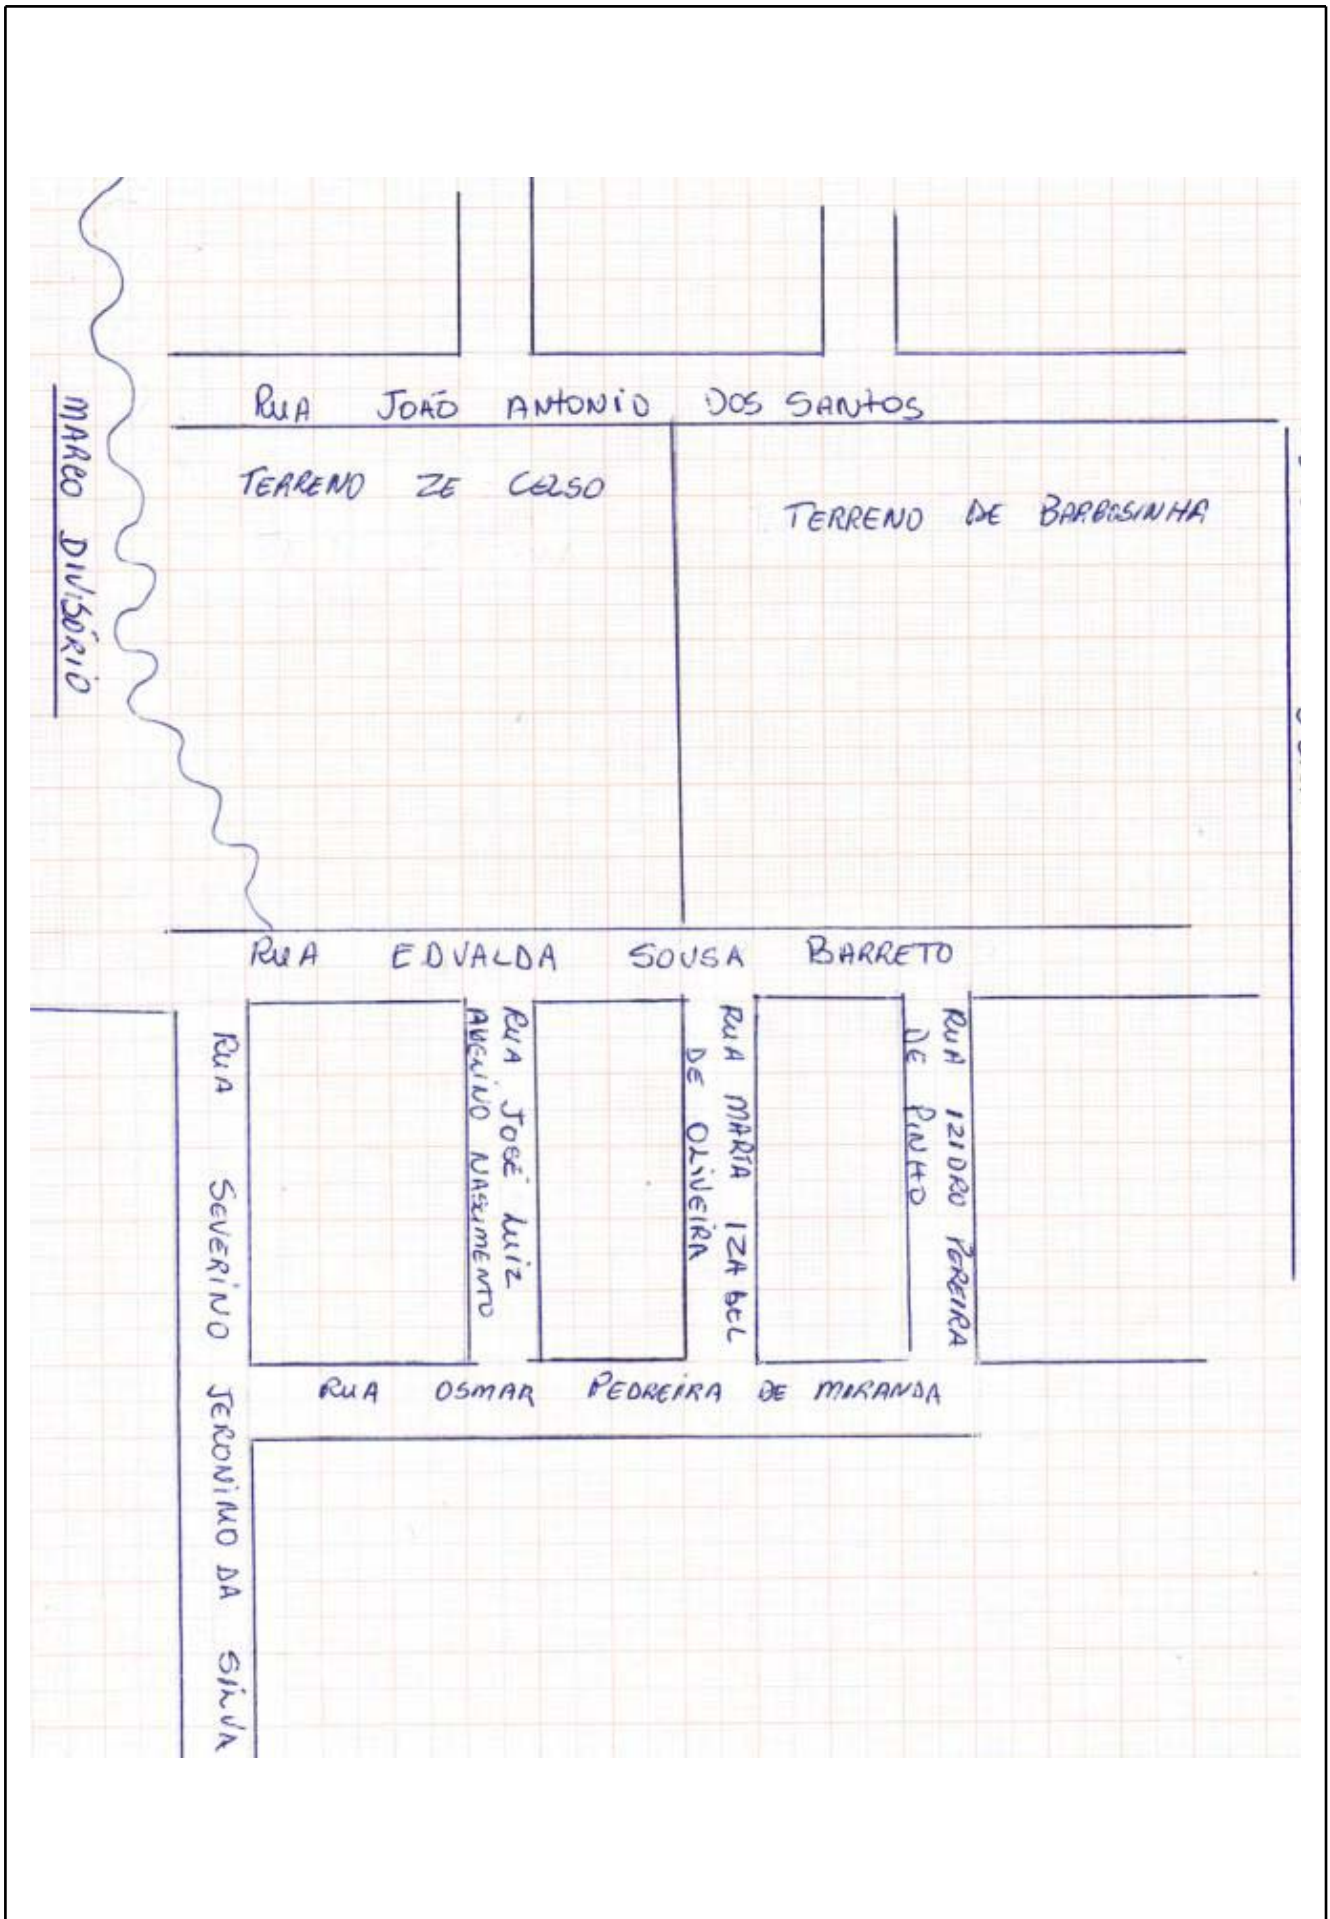 RUA JOÃO ANTONIO DOS SANTOS
MARCO DIVISÓRIO
TERRENO ZE CELSO
TERRENO DE BARBOSINHA
RUA EDVALDA SOUSA BARRETO
RUA SEVERINO JERONIMO DA SILVA
RUA JOSÉ LUIZ
NASCIMENTO
RUA MARIA IZABEL
DE OLIVEIRA
RUA IZIDRO PEREIRA
DE PINHO
RUA OSMAR PEDREIRA DE MIRANDA